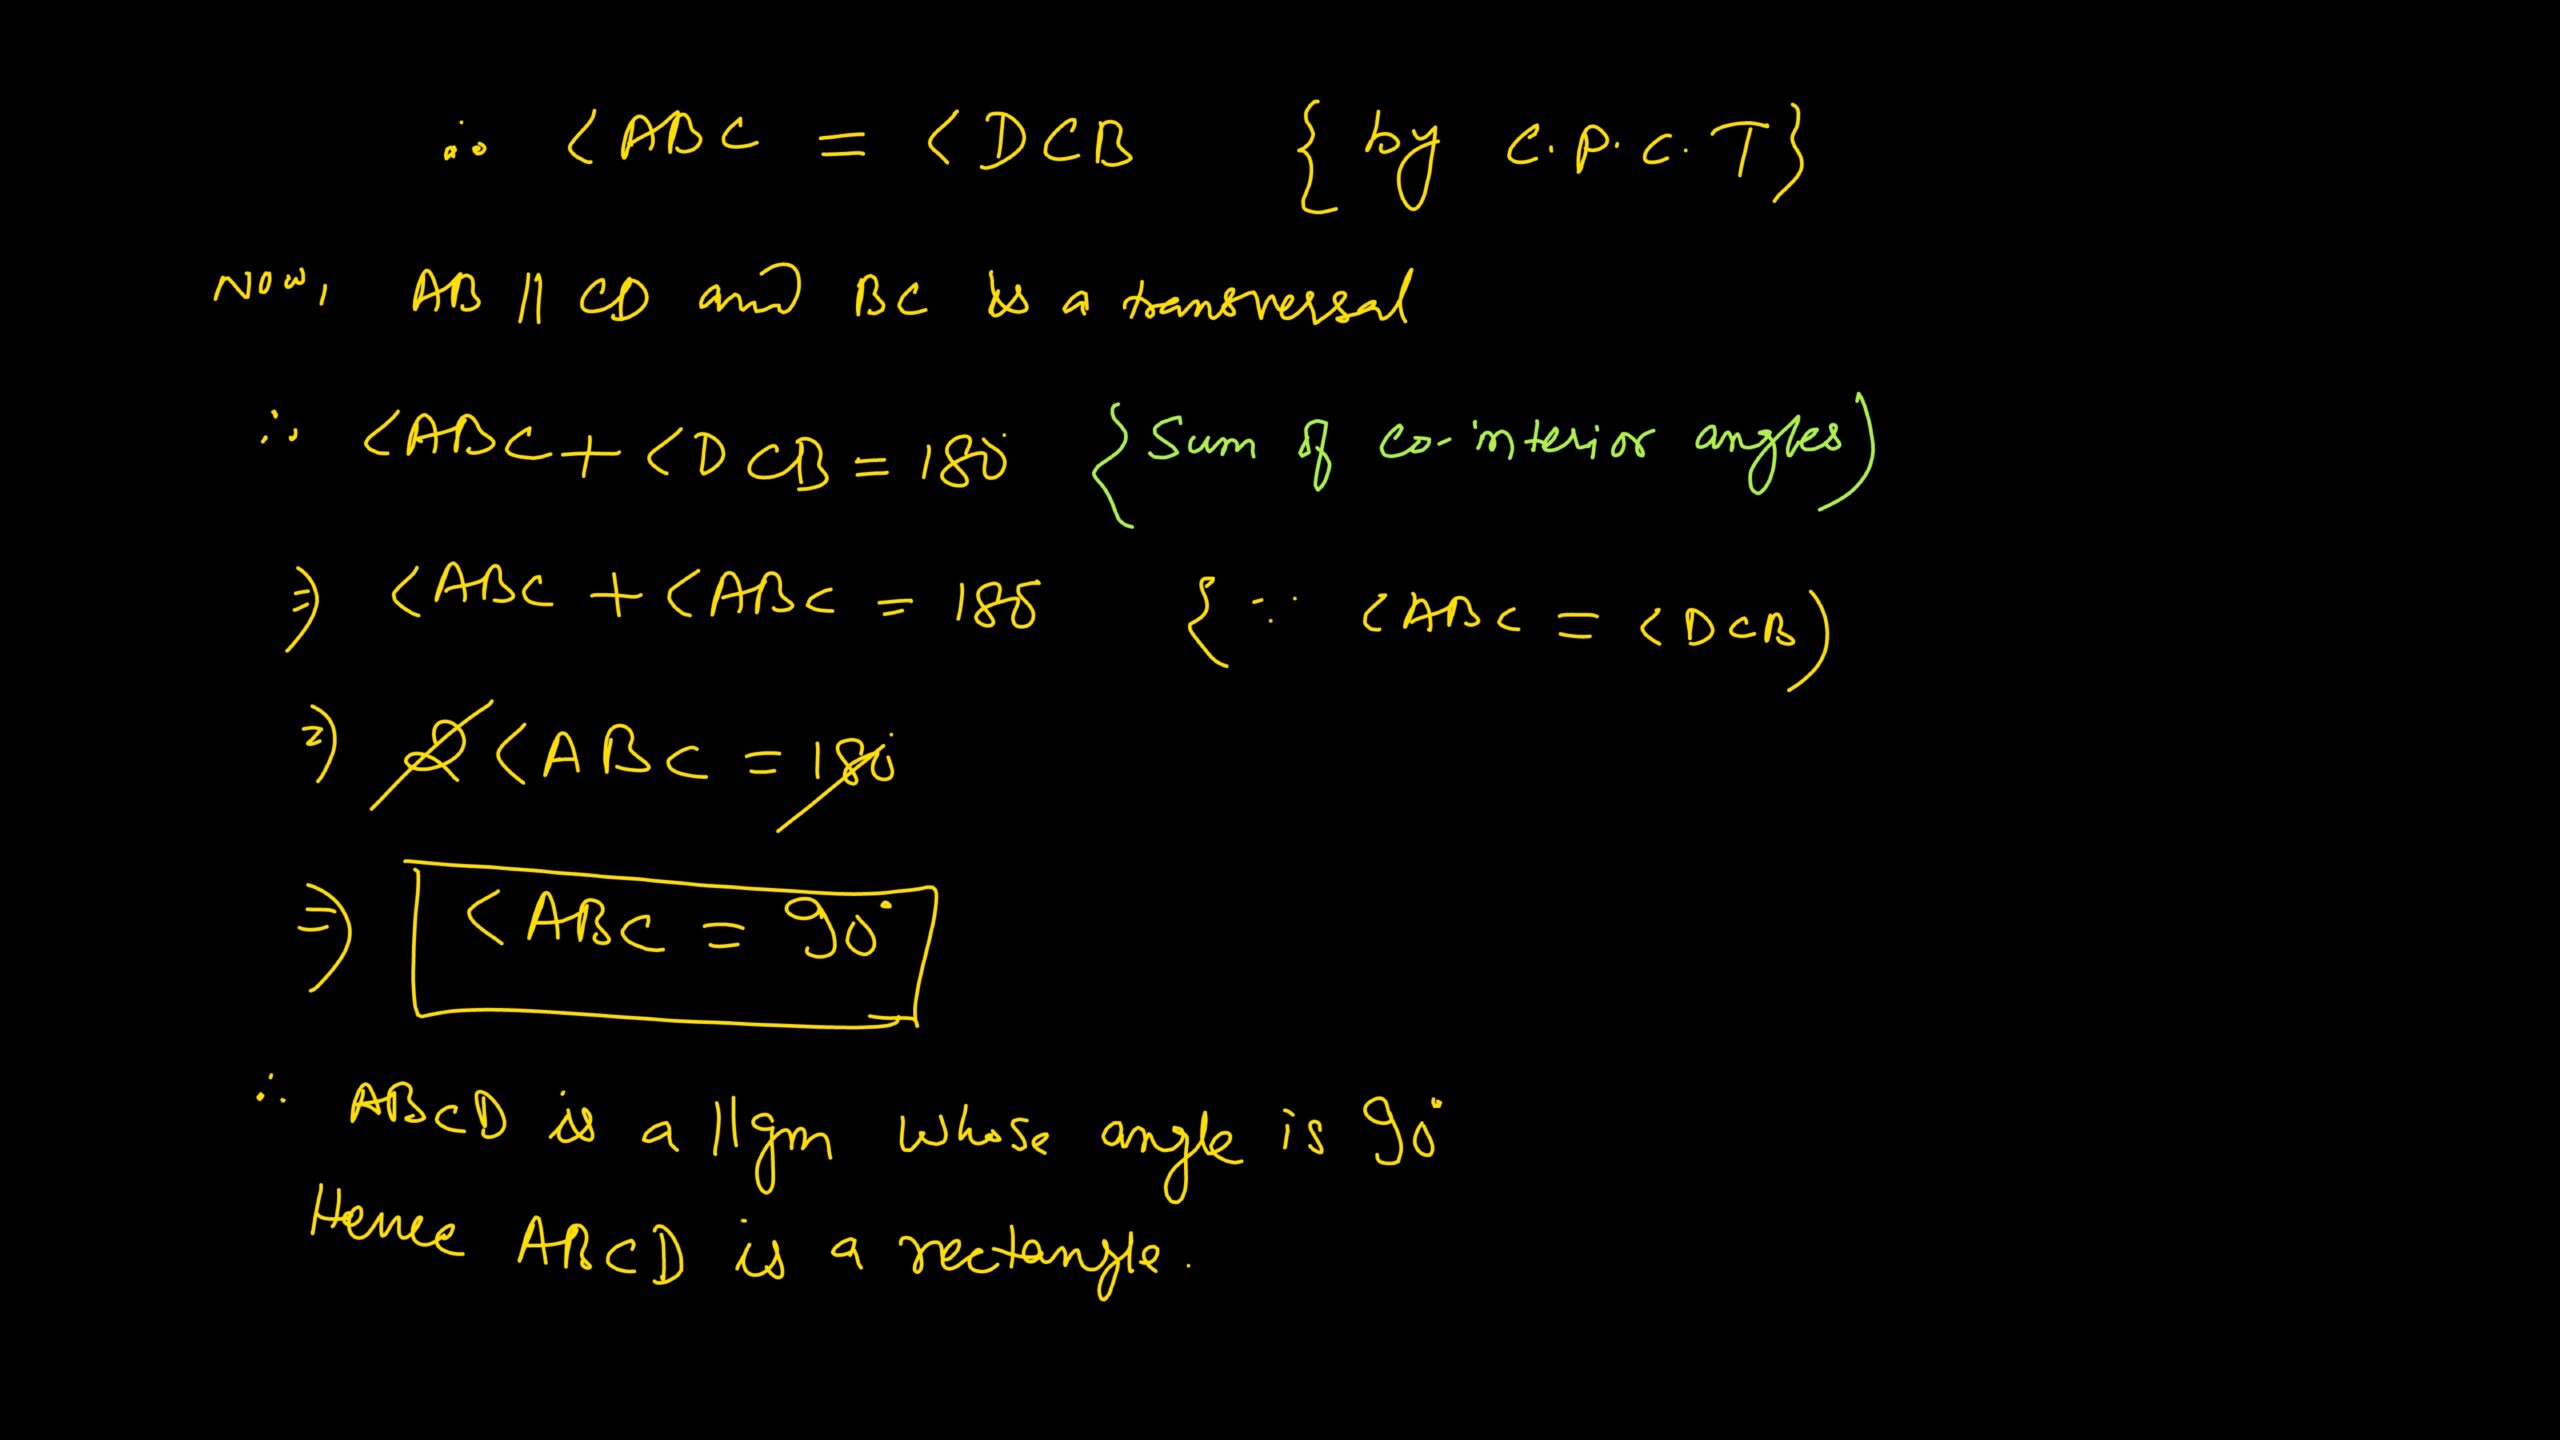 ∴ <ABC = <DCB { by C.P.C.T}
Now, AB || CD and BC is a transversal
∴ <ABC + <DCB = 180° {Sum of co-interior angles)
⇒ <ABC + <ABC = 180° {∵ <ABC = <DCB)
⇒ 2<ABC = 180°
⇒ <ABC = 90°
∴ ABCD is a ||gm whose angle is 90°
Hence ABCD is a rectangle.